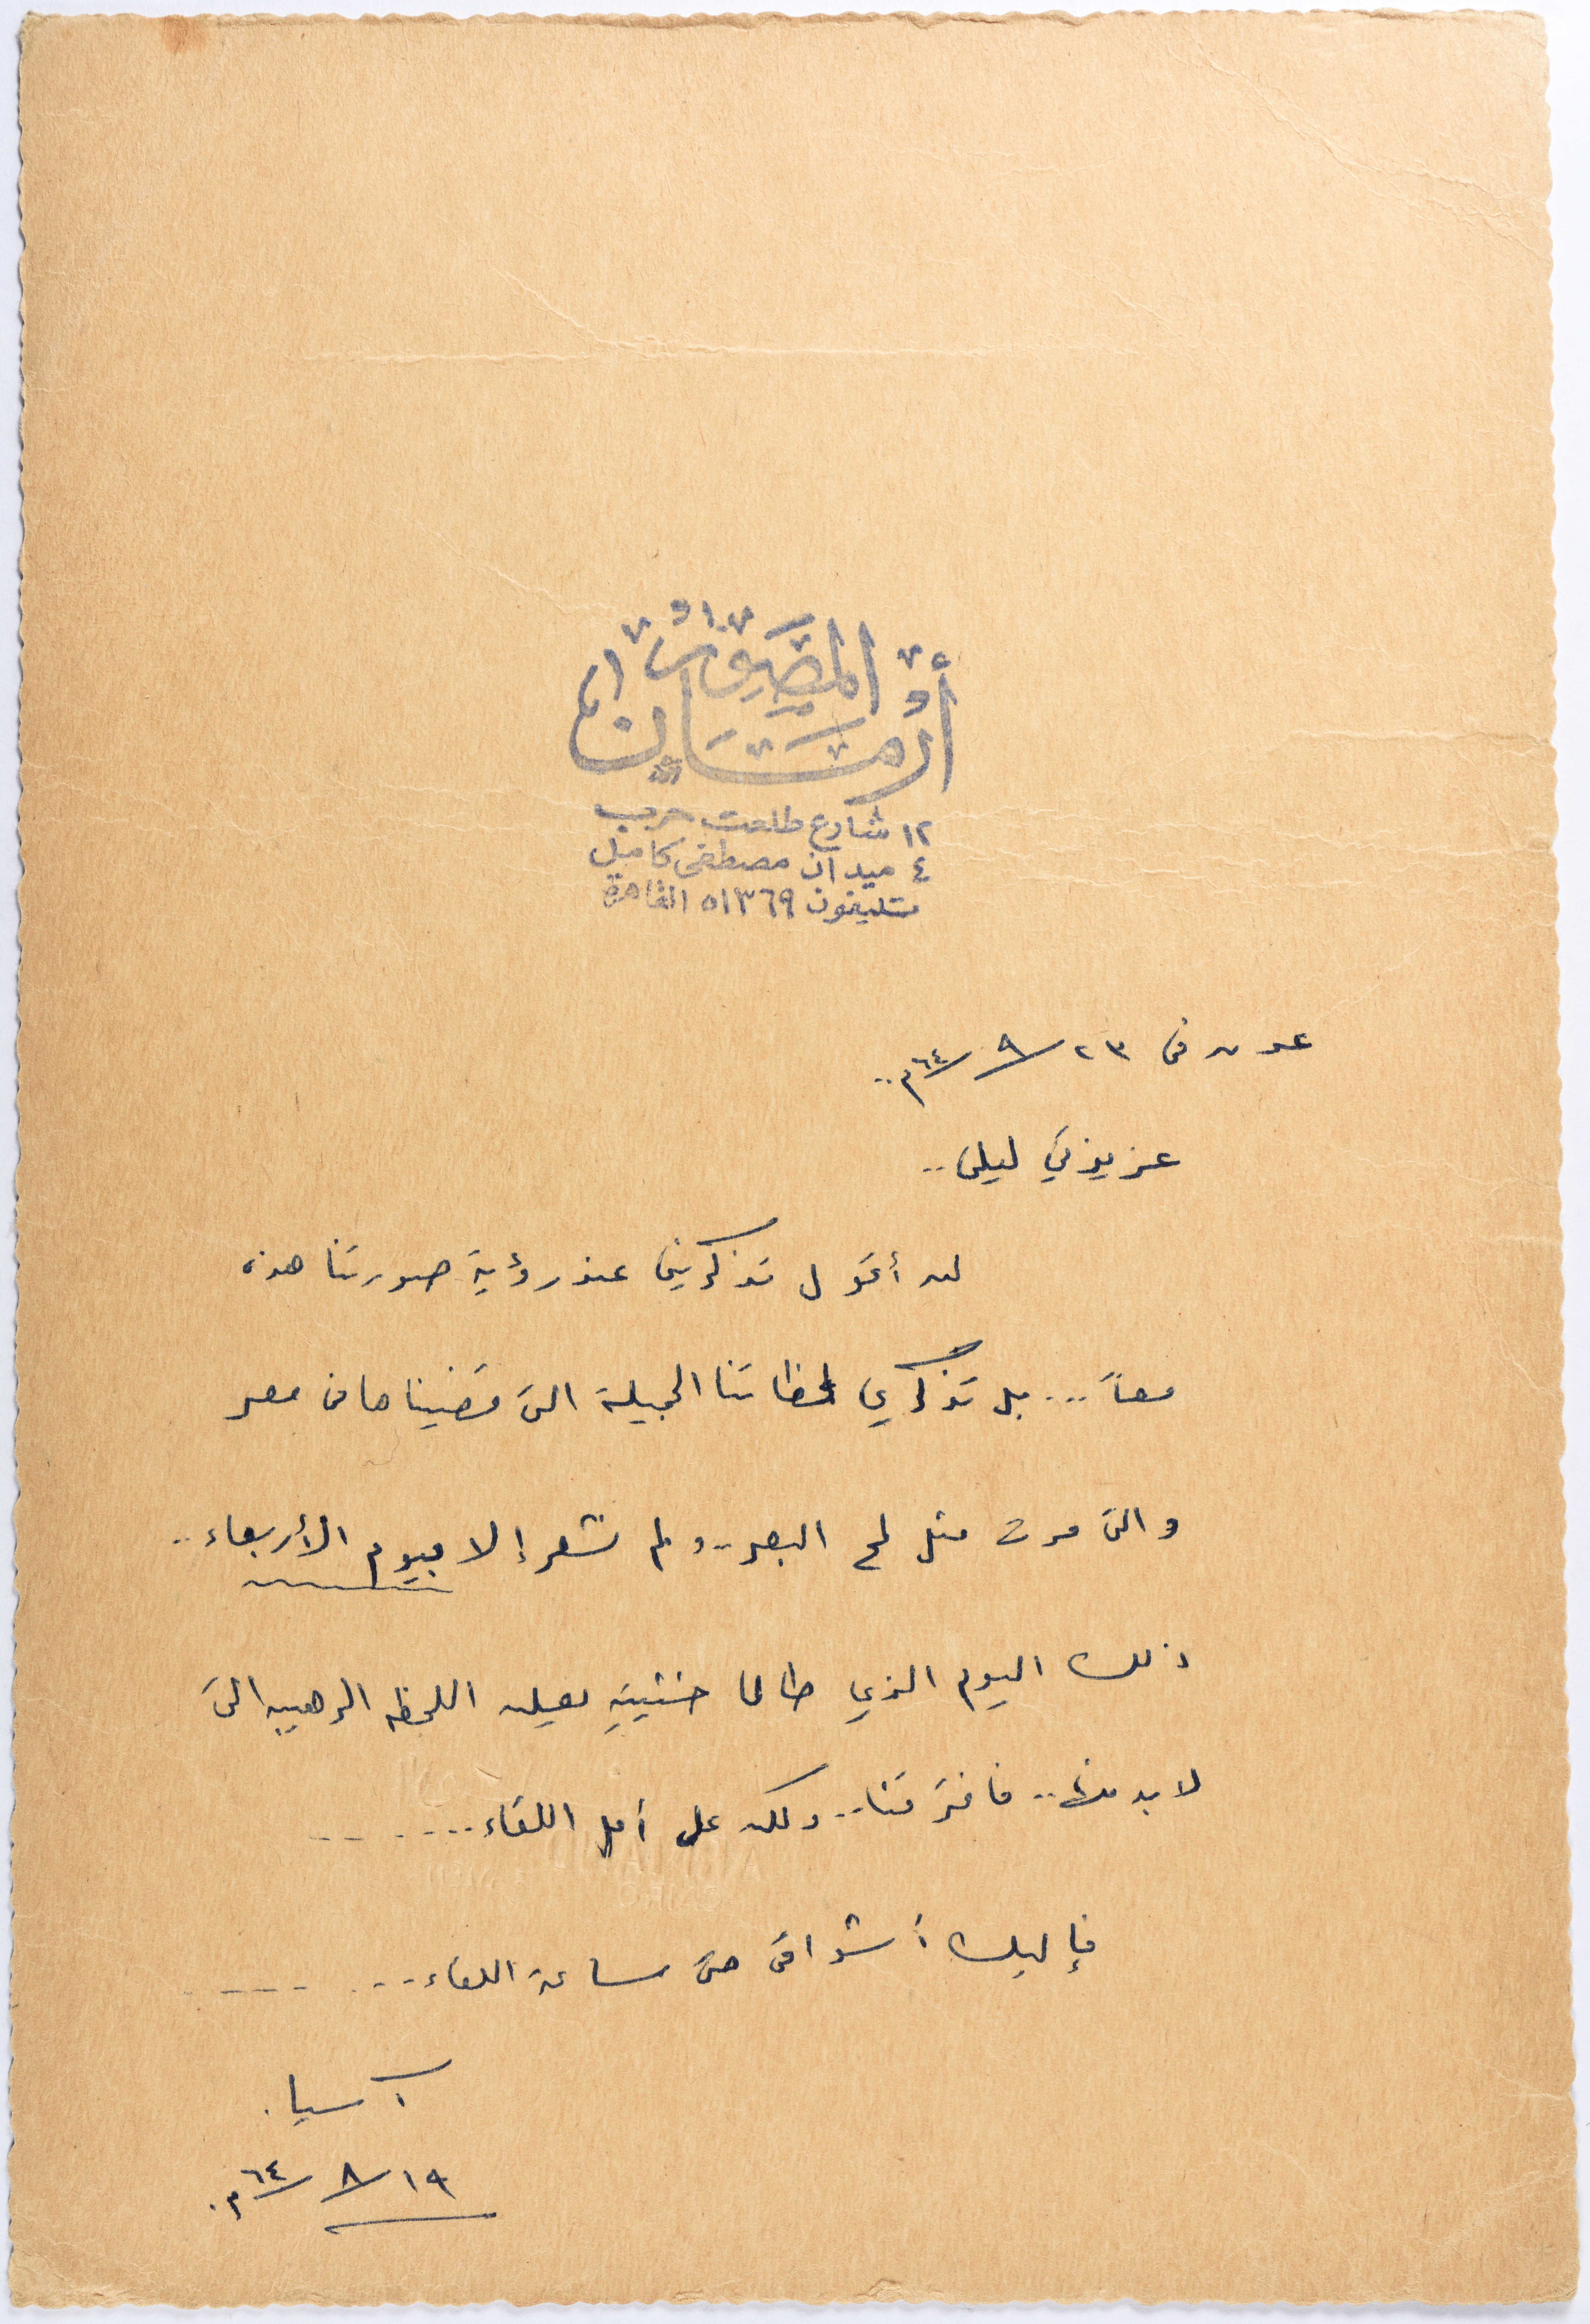 المصوراتى
أرشان
١٢ شارع طلعت حرب
٤ ميدان مصطفى كامل
تليفون ٥١٣٦٩ القاهرة
عدن فى ٢٣/٩/٦٤م..
عزيزتي ليلى..
لن أقول تذكرينى عند رؤية صورتنا هذه
معاً... بل تذكري لحظاتنا الجميلة التى قضيناها فى مصر
والتى مرت مثل لمح البصر.. ولم نشعر إلا بيوم الأربعاء..
ذلك اليوم الذي طالما خشيته يعلن اللحظه الرهيبه التى
لا بد منها.. فافترقنا.. ولكن على أمل اللقاء.......
فإليك أشواقى حتى ساعة اللقاء.......
آسيا.
١٩/٨/٦٤م.